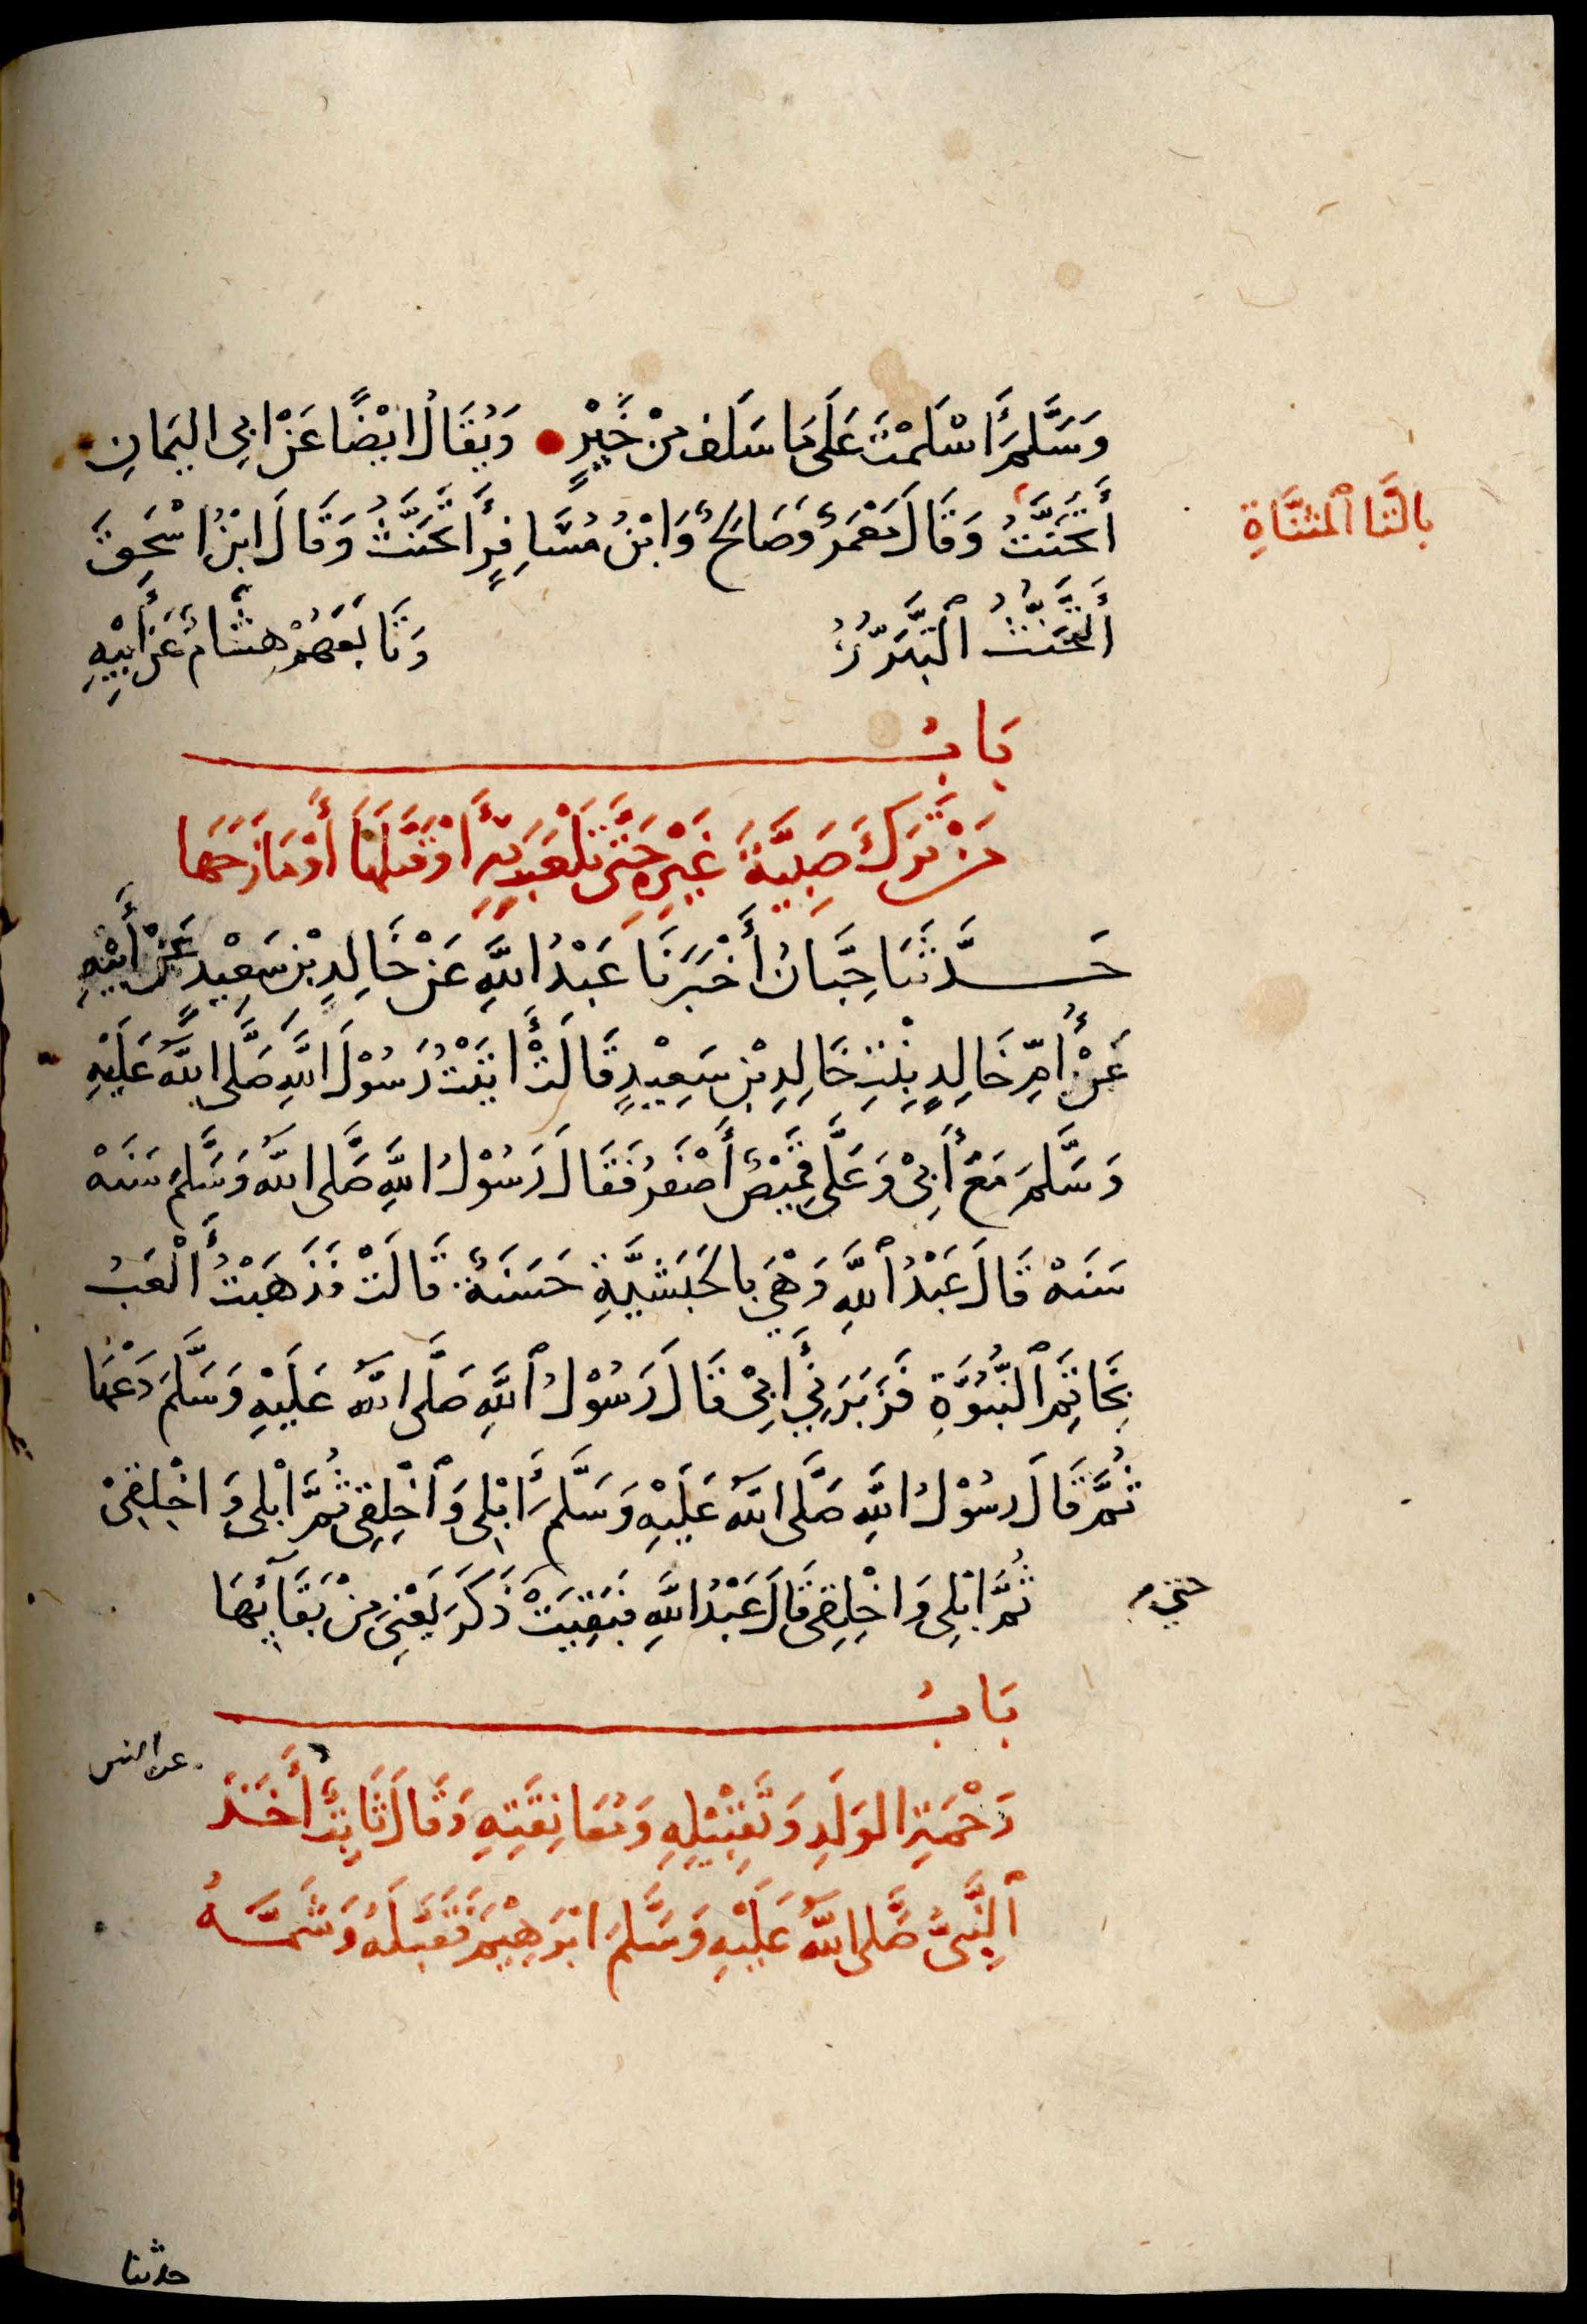 وَسَلَّمَ أَسْلَمْتَ عَلَى مَا سَلَفَ مِنْ خَيْرٍ وَيُقَالُ ايْضًا عَنْ ابِي اليَمَانِ
أَتَحَنَّتُ وَقَالَ مَعْمَرٌ وَصَالِحٌ وَابْنُ مُسَافِرٍ أَتَحَنَّثُ وَقَالَ ابْنُ اسْحٰقَ
بالتَّا ٱلمثنَّاةِ
أَلتَّحَنُّثُ ٱلتَّبَرُّرُ وَتَابَعَهُمْ هِشَامٌ عَنْ أَبِيْهِ
بَابُ
مَنْ تَرَكَ صَبِيَّةَ غَيْرِهِ حَتَّى تَلْعَبَ بِهِ أَوْ قَبَّلَهَا أَوْ مَازَحَهَا
حَدَّثَنَا حِبَّانُ أَخْبَرَنَا عَبْدُ اللَّهِ عَنْ خَالِدِ بْنِ سَعِيْدٍ عَنْ أَبِيْهِ
عَنْ أُمِّ خَالِدٍ بِنْتِ خَالِدِ بْنِ سَعِيْدٍ قَالَتْ أَتَيْتُ رَسُوْلَ اللَّهِ صَلَّى اللَّهُ عَلَيْهِ
وَسَلَّمَ مَعَ أَبِيْ وَعَلَيَّ قَمِيْصٌ أَصْفَرُ فَقَالَ رَسُوْلُ اللَّهِ صَلَّى اللَّهُ وَسَلَّمَ سَنَهْ
سَنَهْ قَالَ عَبْدُ ٱللَّهِ وَهْيَ بِالحَبَشِيَّةِ حَسَنَةٌ قَالَتْ فَذَهَبْتُ أَلْعَبُ
بِخَاتِمِ ٱلنُّبُوَّةِ فَزَبَرَنِي أَبِيْ قَالَ رَسُوْلُ ٱللَّهِ صَلَّى اللَّهُ عَلَيْهِ وَسَلَّمَ دَعْهَا
ثُمَّ قَالَ رسُوْلُ اللَّهِ صَلَّى اللَّهُ عَلَيْهِ وَسَلَّمَ أَبْلِي وَٱخْلِقِي ثُمَّ ابْلِي وَاخْلِقِيْ
ثُمَّ ابْلِي وَاخْلِقِي قَالَ عَبْدُ اللَّهِ فَبَقِيَتْ ذَكَرَ يَعْنِيْ مِنْ بَقَآئِهَا
حتى
بَابُ
رَحْمَةِ الوَلَدِ وَتَقْبِيْلِهِ وَمُعَانِقَتِهِ وَقَالَ ثَابِتٌ أَخَذَ
عن انس
ٱلنَّبِيُّ صَلَّى اللَّهُ عَلَيْهِ وَسَلَّمَ ابْرَهِيْمَ فَقَبَّلَهُ وَشَمَّهُ
حدثنا